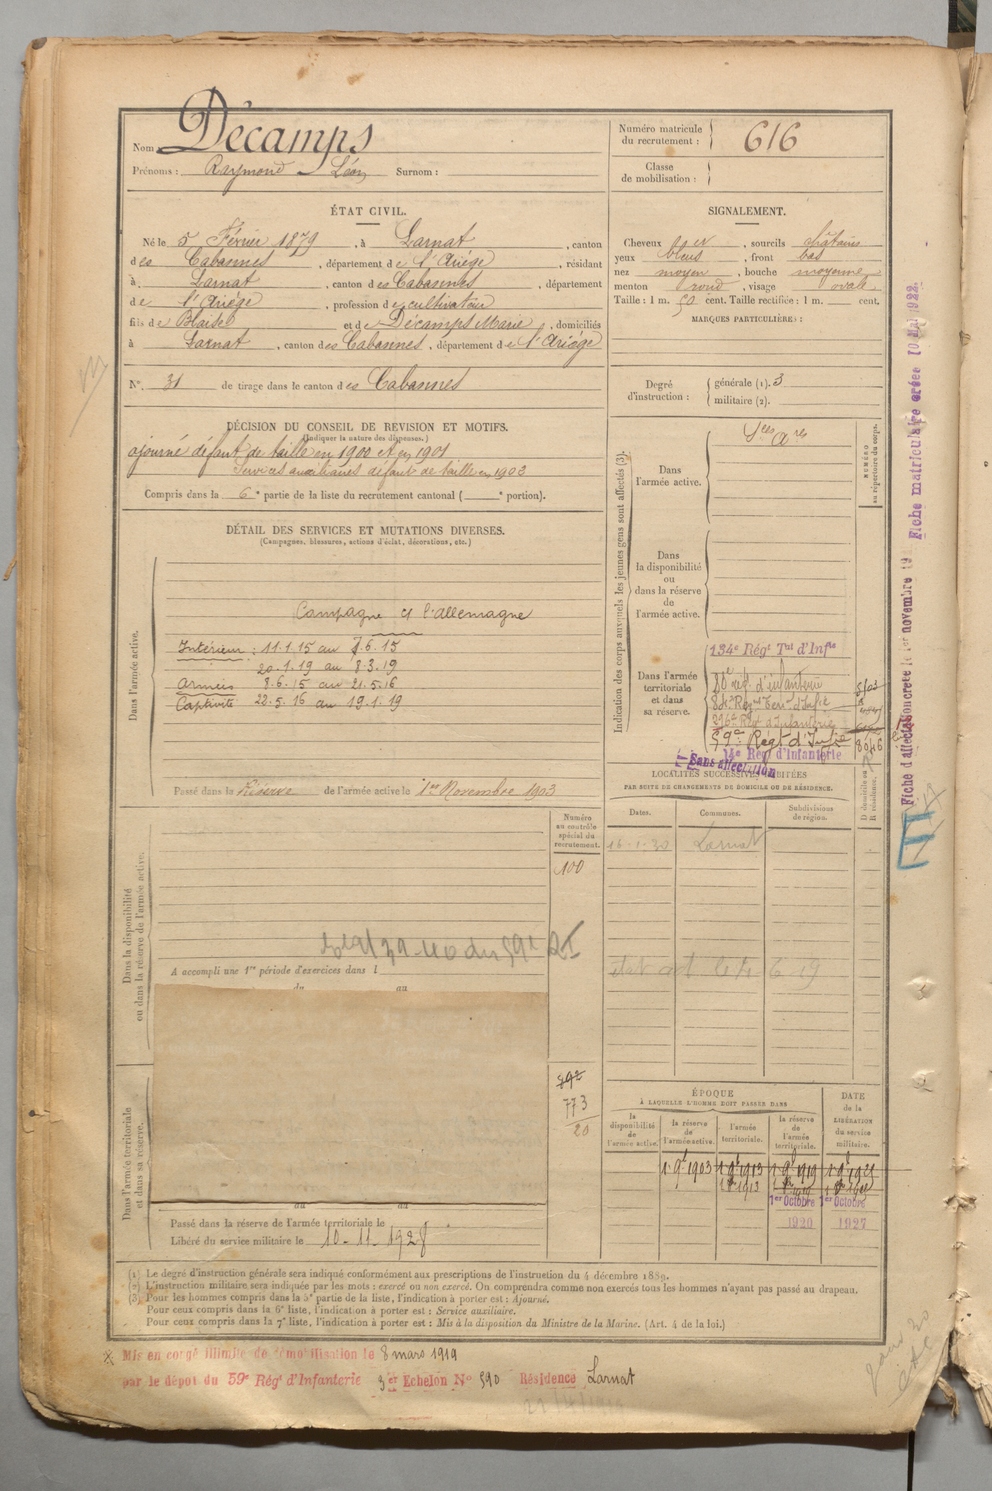 Nom Décamps
Prénoms : Raymond Léon Surnom :
Numéro matricule du recrutement : 616
Classe de mobilisation :
ÉTAT CIVIL.
Né le 5 Février 1879, à Larnat, canton
des Cabannes, département de l'Ariège, résidant
à Larnat, canton des Cabannes, département
de l'Ariège, profession de cultivateur
fils de Blaise et de Décamps Marie, domiciliés
à Larnat, canton des Cabannes, département de l'Ariège
N° 31 de tirage dans le canton des Cabannes
SIGNALEMENT.
Cheveux , sourcils châtains
yeux bleus, front bas
nez moyen, bouche moyenne
menton rond, visage ovale
Taille : 1 m. 50 cent. Taille rectifiée : 1 m. cent.
MARQUES PARTICULIÈRES :
Degré d'instruction : générale (1). 3
militaire (2).
DÉCISION DU CONSEIL DE REVISION ET MOTIFS.
(Indiquer la nature des dispenses.)
ajourné défaut de taille en 1900 et en 1901
Services auxiliaires défaut de taille en 1902
Compris dans la 6e partie de la liste du recrutement cantonal ( e portion).
DÉTAIL DES SERVICES ET MUTATIONS DIVERSES.
(Campagnes, blessures, actions d'éclat, décorations, etc.)
Dans l'armée active.
Campagne c/ l'allemagne
Intérieur : 11.1.15 au 7.6.15
20.1.19 au 8.3.19
Armées 8.6.15 au 21.5.16
Captivité 22.5.16 au 19.1.19
Passé dans la Réserve de l'armée active le 1er Novembre 1903
Indication des corps auxquels les jeunes gens sont affectés (3).
NUMÉRO au répertoire du corps.
Dans l'armée active.
Sces Ares
Dans la disponibilité ou dans la réserve de l'armée active.
Dans l'armée territoriale et dans sa réserve.
134e Régt Tal d'Infie
80e rég. d'infanterie
296e Régt d'Infanterie
59e Régt d'Infie
14e Rég d'Infanterie
Sans affectation
LOCALITÉS SUCCESSIVES HABITÉES
PAR SUITE DE CHANGEMENTS DE DOMICILE OU DE RÉSIDENCE.
Dates. Communes. Subdivisions de région. D domicile ou R résidence.
16.1.30 Larnat
Dans la disponibilité ou dans la réserve de l'armée active.
Numéro au contrôle spécial du recrutement.
100
A accompli une 1re période d'exercices dans l
du au
773
20
Dans l'armée territoriale et dans sa réserve.
du au
Passé dans la réserve de l'armée territoriale le
Libéré du service militaire le 10-11-1928
ÉPOQUE
À LAQUELLE L'HOMME DOIT PASSER DANS
DATE de la LIBÉRATION du service militaire.
la disponibilité de l'armée active. la réserve de l'armée active. l'armée territoriale. la réserve de l'armée territoriale.
1er Octobre 1er Octobre
1920 1927
(1) Le degré d'instruction générale sera indiqué conformément aux prescriptions de l'instruction du 4 décembre 1889.
(2) L'instruction militaire sera indiquée par les mots : exercé ou non exercé. On comprendra comme non exercés tous les hommes n'ayant pas passé au drapeau.
(3) Pour les hommes compris dans la 5e partie de la liste, l'indication à porter est : Ajourné.
Pour ceux compris dans la 6e liste, l'indication à porter est : Service auxiliaire.
Pour ceux compris dans la 7e liste, l'indication à porter est : Mis à la disposition du Ministre de la Marine. (Art. 4 de la loi.)
Mis en congé illimité de démobilisation le 8 mars 1919
par le dépôt du 59e Régt d'Infanterie 3er Echelon N° 590 Résidence Larnat
Fiche matriculaire créée 10 Mai 1922.